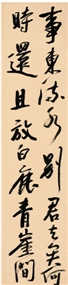 事東流水別君去兮何
時還且放白鹿青崖間